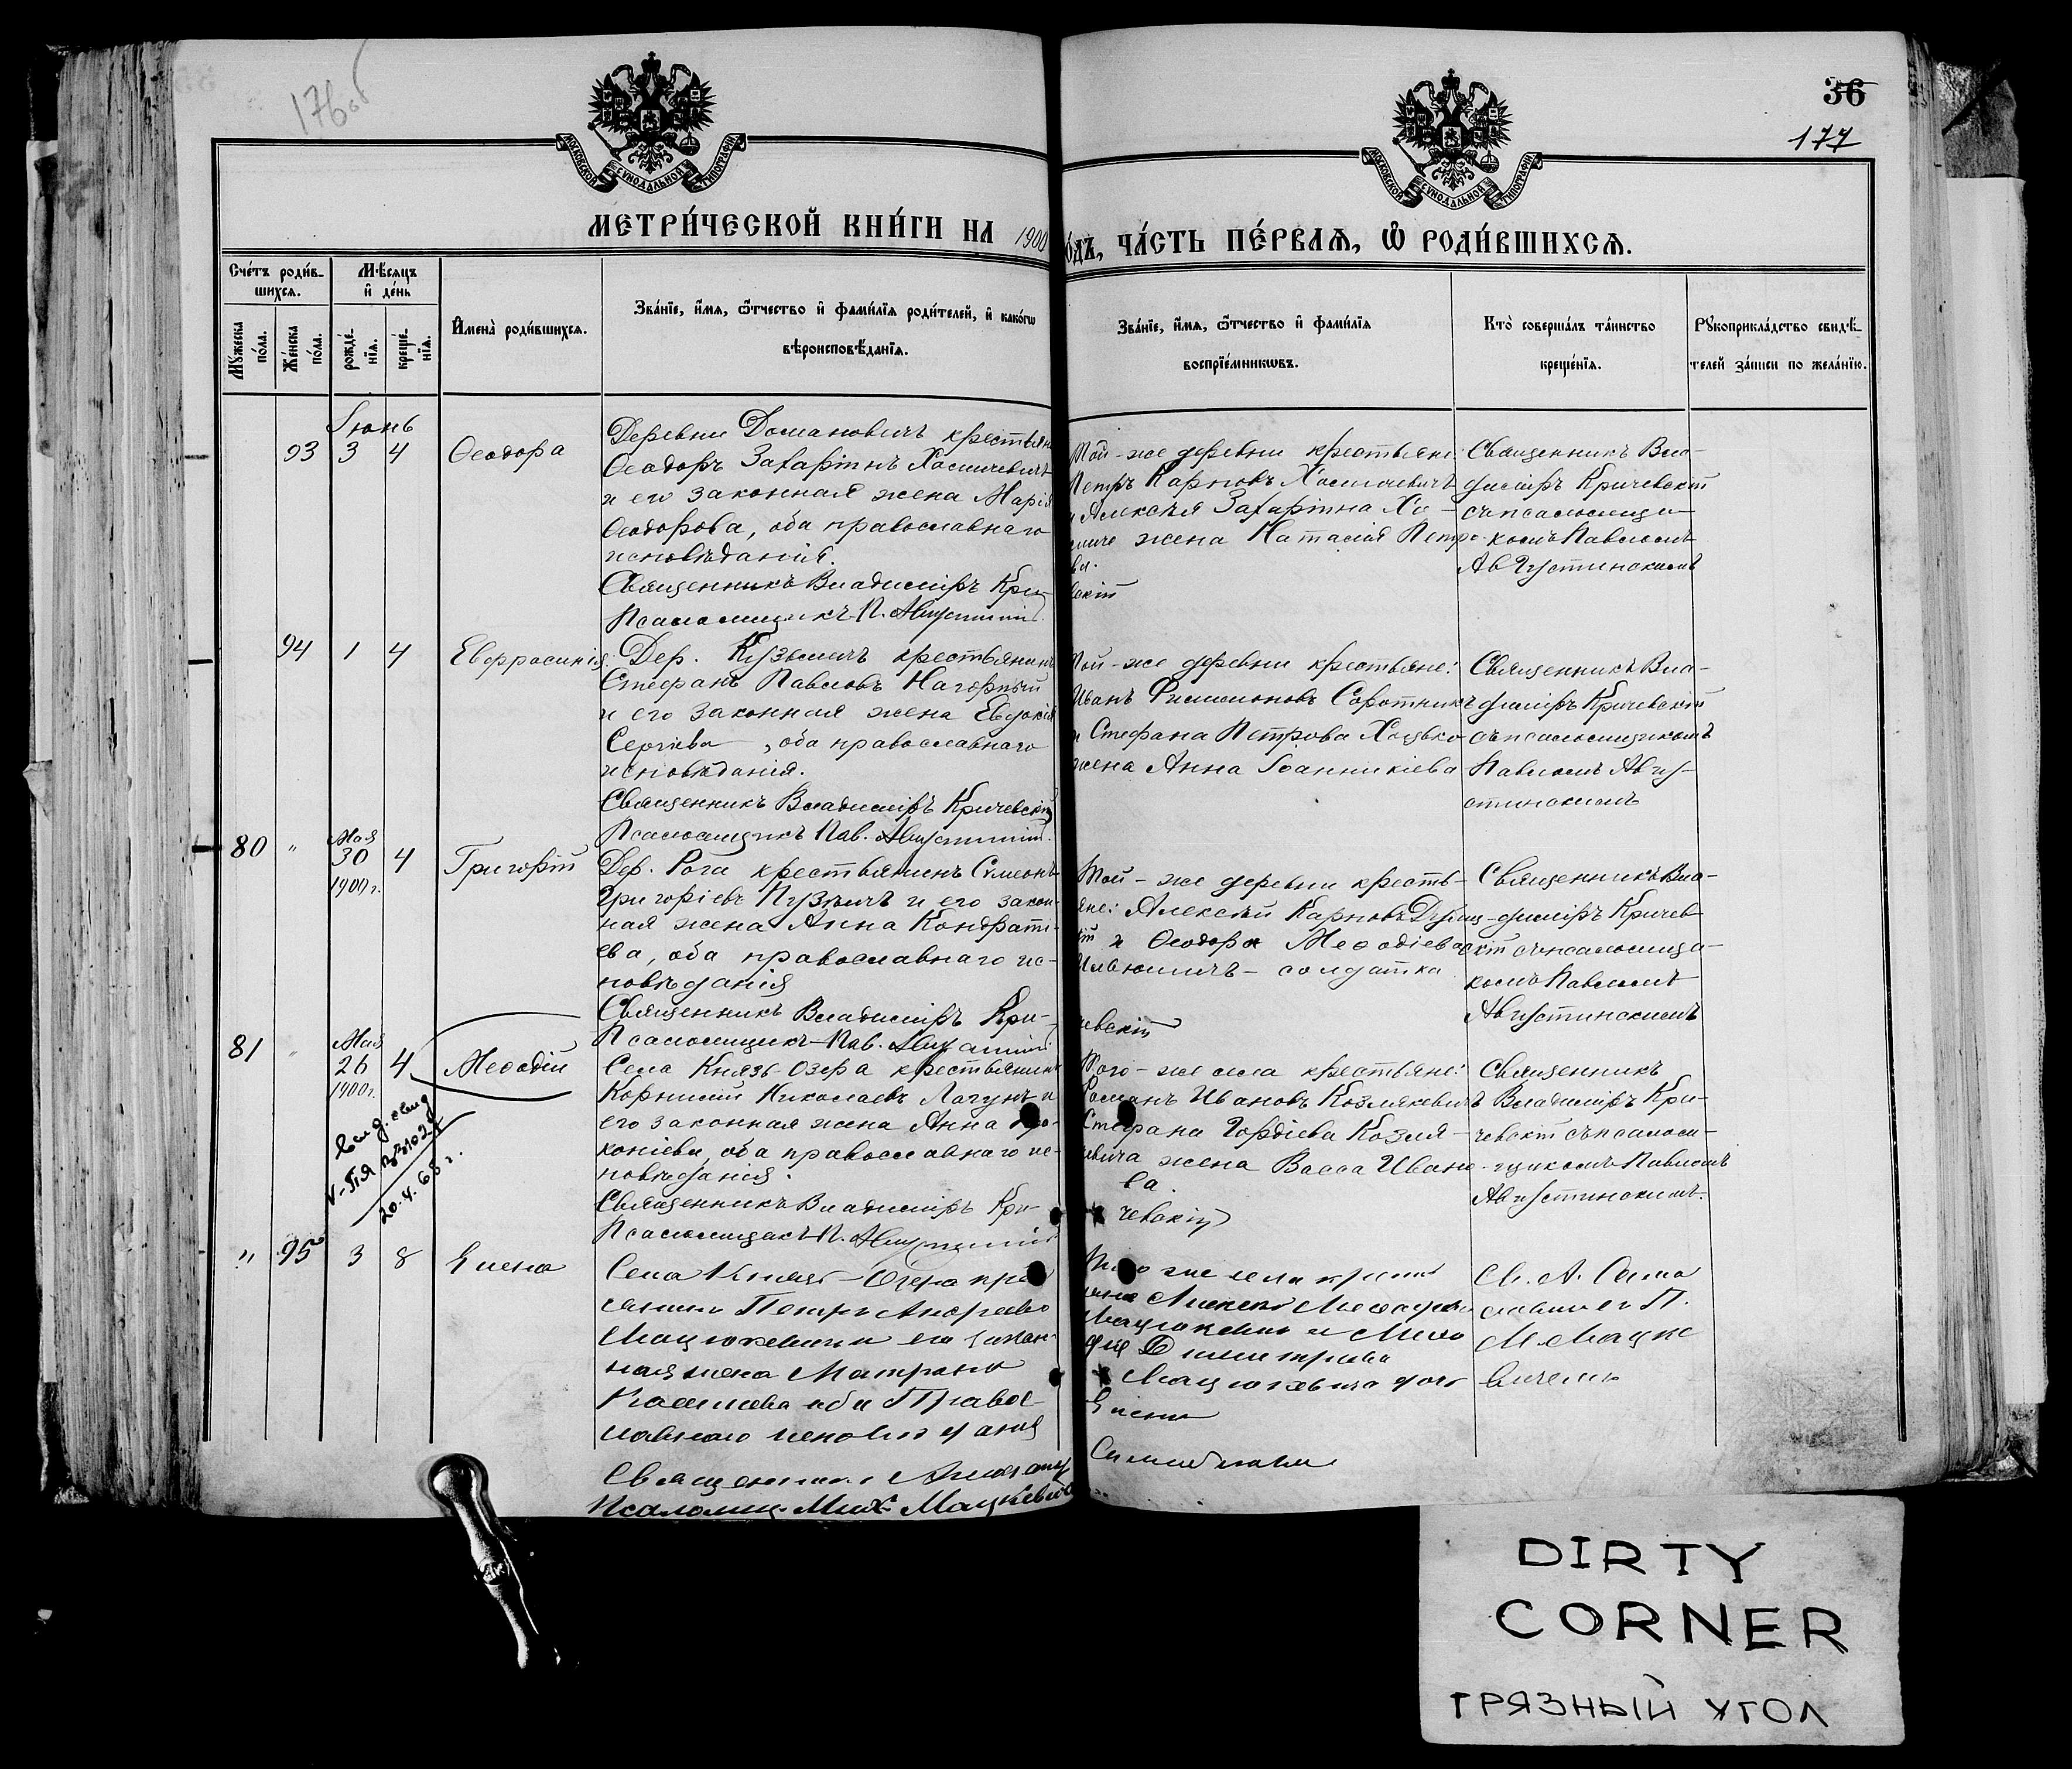 176 об
36
177
МОСКОВСКОЙ СѴНОДАЛЬНОЙ ТИПОГРАФІИ
МОСКОВСКОЙ СѴНОДАЛЬНОЙ ТИПОГРАФІИ
МЕТРИ́ЧЕСКОЙ КНИ́ГИ НА 1900
ГО́ДЪ, ЧА́СТЬ ПЕ́РВАѦ, Ѿ РОДИ́ВШИХСѦ.
Сче́тъ роди́в-
шихсѧ.
Мѣ́сѧцъ
и҆ де́нь
Мꙋ́жеска
по́ла.
Же́нска
по́ла.
рожде́-
нїѧ.
креще́-
нїѧ.
И҆мена̀ роди́вшихсѧ.
Зва́нїе, и҆́мѧ, ѻ҆́тчество и҆ фами́лїѧ роди́телей, и҆ како́гѡ
вѣроисповѣ́данїѧ.
Зва́нїе, и҆́мѧ, ѻ҆́тчество и҆ фами́лїѧ
воспрїе́мникѡвъ.
Кто̀ соверша́лъ та́инство
креще́нїѧ.
Рꙋкоприкла́дство свидѣ́-
телей за́писи по жела́нїю.
Іюнь
93 3 4 Ѳеодора
Деревни Домановичъ крестьянинъ
Ѳеодоръ Захаріинъ Хосмиевичъ
и его законная жена Марія
Ѳеодорова, оба православнаго
исповѣданія.
Священникъ Владиміръ Кри-
Псаломщикъ П. Августин
Той-же деревни крестьяне:
Петръ Карповъ
и Алексѣя Захаріина Хо-
жена Наталія Петро-
ва.
вскій
Священникъ Вла-
диміръ Кричевскій
съ псаломщи-
комъ Павломъ
Августинскимъ
94 1 4 Евфросинія
Дер. Кузьмичъ крестьянинъ
Стефанъ Павловъ Нагорный
и его законная жена Евдокія
Сергіева, оба православнаго
исповѣданія.
Священникъ Владиміръ Кричевскій
Псаломщикъ Пав. Августин
Той-же деревни крестьяне:
Иванъ Филимоновъ Сиротникъ
и Стефана Петрова Хоцько
жена Анна Іоанникіева
Священникъ Вла-
диміръ Кричевскій
съ псаломщикомъ
Павломъ Авгу-
стинскимъ
80 " Мая 30 1900 г. 4 Григорій
Дер. Рога крестьянинъ Сѵмеонъ
Григоріевъ Пузычъ и его закон-
ная жена Анна Кондраті-
ева, оба православнаго ис-
повѣданія
Священникъ Владиміръ Кри-
Псаломщикъ Пав.
Той-же деревни кресть-
яне: Алексѣй Карповъ
и Ѳеодора Меѳодіева
солдатка
чевскій
Священникъ Вла-
диміръ Кричев-
скій съ псаломщи-
комъ Павломъ
Августинскимъ
81 " Мая 26 1900 г. 4 Меѳодій
Села Князь-Озера крестьянинъ
Корнилій Николаевъ Лагунъ и
его законная жена Анна Про-
копіева, оба православнаго ис-
повѣданія.
Священникъ Владиміръ Кри-
Псаломщикъ П.
Того-же села крестьяне:
Романъ Ивановъ Козлякевичъ
Стефана Гордіева Козля-
кевича жена Васса Ивано-
ва.
чевскій
Священникъ
Владиміръ Кри-
чевскій съ псалом-
щикомъ Павломъ
Августинскимъ.
Выд. свид
20.4.68 г.
" 95 3 8 Елена
Села Князь-Озера кре
Петръ Андреевъ
и его закон-
ная жена Матрона
оба Правос-
лавнаго исповѣданія
Священникъ
Псаломщ. Мих. Мацкевич
Того же села
Димитріева
Елена
Св. А. Само
П.
М. Мацке
вичемъ
DIRTY
CORNER
ГРЯЗНЫЙ УГОЛ